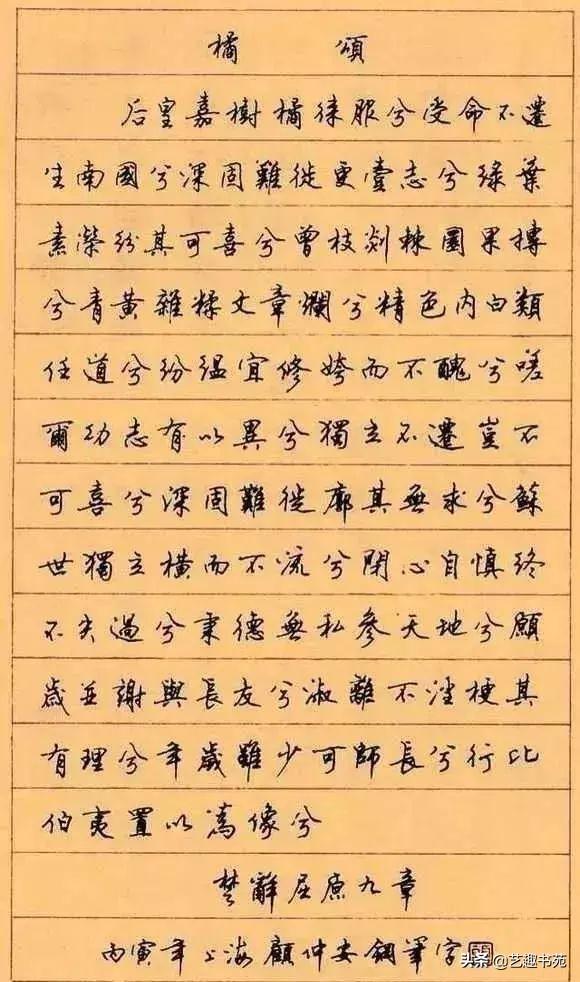 橘 頌
后皇嘉樹橘徠服兮受命不遷
生南國兮深固難徙更壹志兮綠葉
素榮紛其可喜兮曾枝剡棘圜果摶
兮青黃雜糅文章爛兮精色内白類
任道兮紛緼宜修姱而不醜兮嗟
爾幼志有以異兮獨立不遷豈不
可喜兮深固難徙廓其無求兮蘇
世獨立橫而不流兮閉心自慎終
不失過兮秉德無私參天地兮願
歲並謝與長友兮淑離不淫梗其
有理兮年歲雖少可師長兮行比
伯夷置以為像兮
楚辭屈原九章
丙寅年上海顧仲安鋼筆字
头条@艺趣书苑